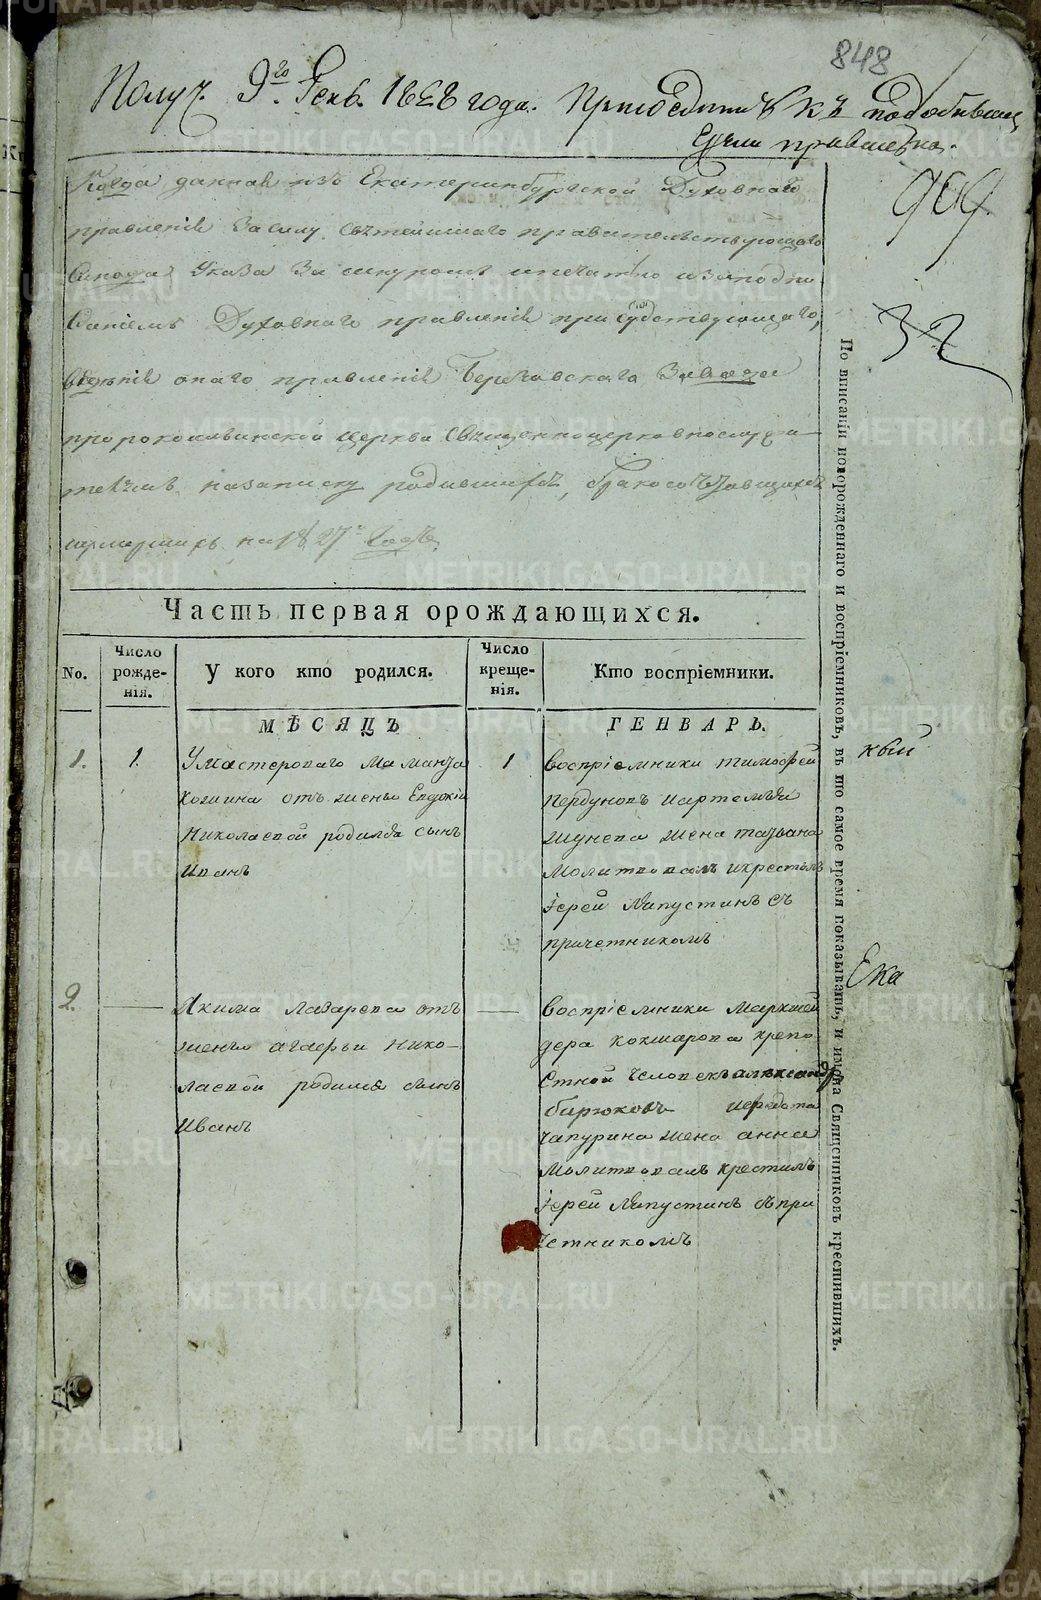 848
Получ. 9го Генв. 1828 года. Присоединить къ подобнымъ
909
32
Книга данная изъ Екатеринбургскаго Духовнаго
правленія Всилу Святейшаго правительствующаго
Синода Указа За шнуромъ ипечатью изаподпи
саніемъ Духовнаго правленія присудствующаго,
вѣденія онаго правленія Березовскаго Завода
пророкоильинской церкви священноцерковнослужи
телямъ назаписку родившихся, бракосочтавшихся
иумершихъ на 1827й Годъ
Часть первая орождающихся.
No. Число рожде-нія. У кого кто родился. Число креще-нія. Кто воспріемники.
МѢСЯЦЪ ГЕНВАРЬ.
1. 1. Умастероваго Маманта
отъ жены Евдокіи
Николаевой родился сынъ
Иванъ
1 воспріемники тимофей
Пердуновъ иартемья
жена татьяна
Молитвовалъ икрестилъ
Іерей Ляпустинъ съ
причетникомъ
2. Якима Лазарева отъ
жены агафьи Нико-
лаевой родился сынъ
Иванъ
воспріемники Маркшей
дера Кокшарова крепо
стной человекъ александръ
бирюковъ иефедота
Чапурина жена анна
Молитвовалъ крестилъ
Іерей Ляпустинъ спри
четникомъ
По вписаніи новорожденнаго и воспріемниковъ, въ то самое время показывать, и имена Священниковъ крестившихъ.
кый
Ека
METRIKI.GASO-URAL.RU